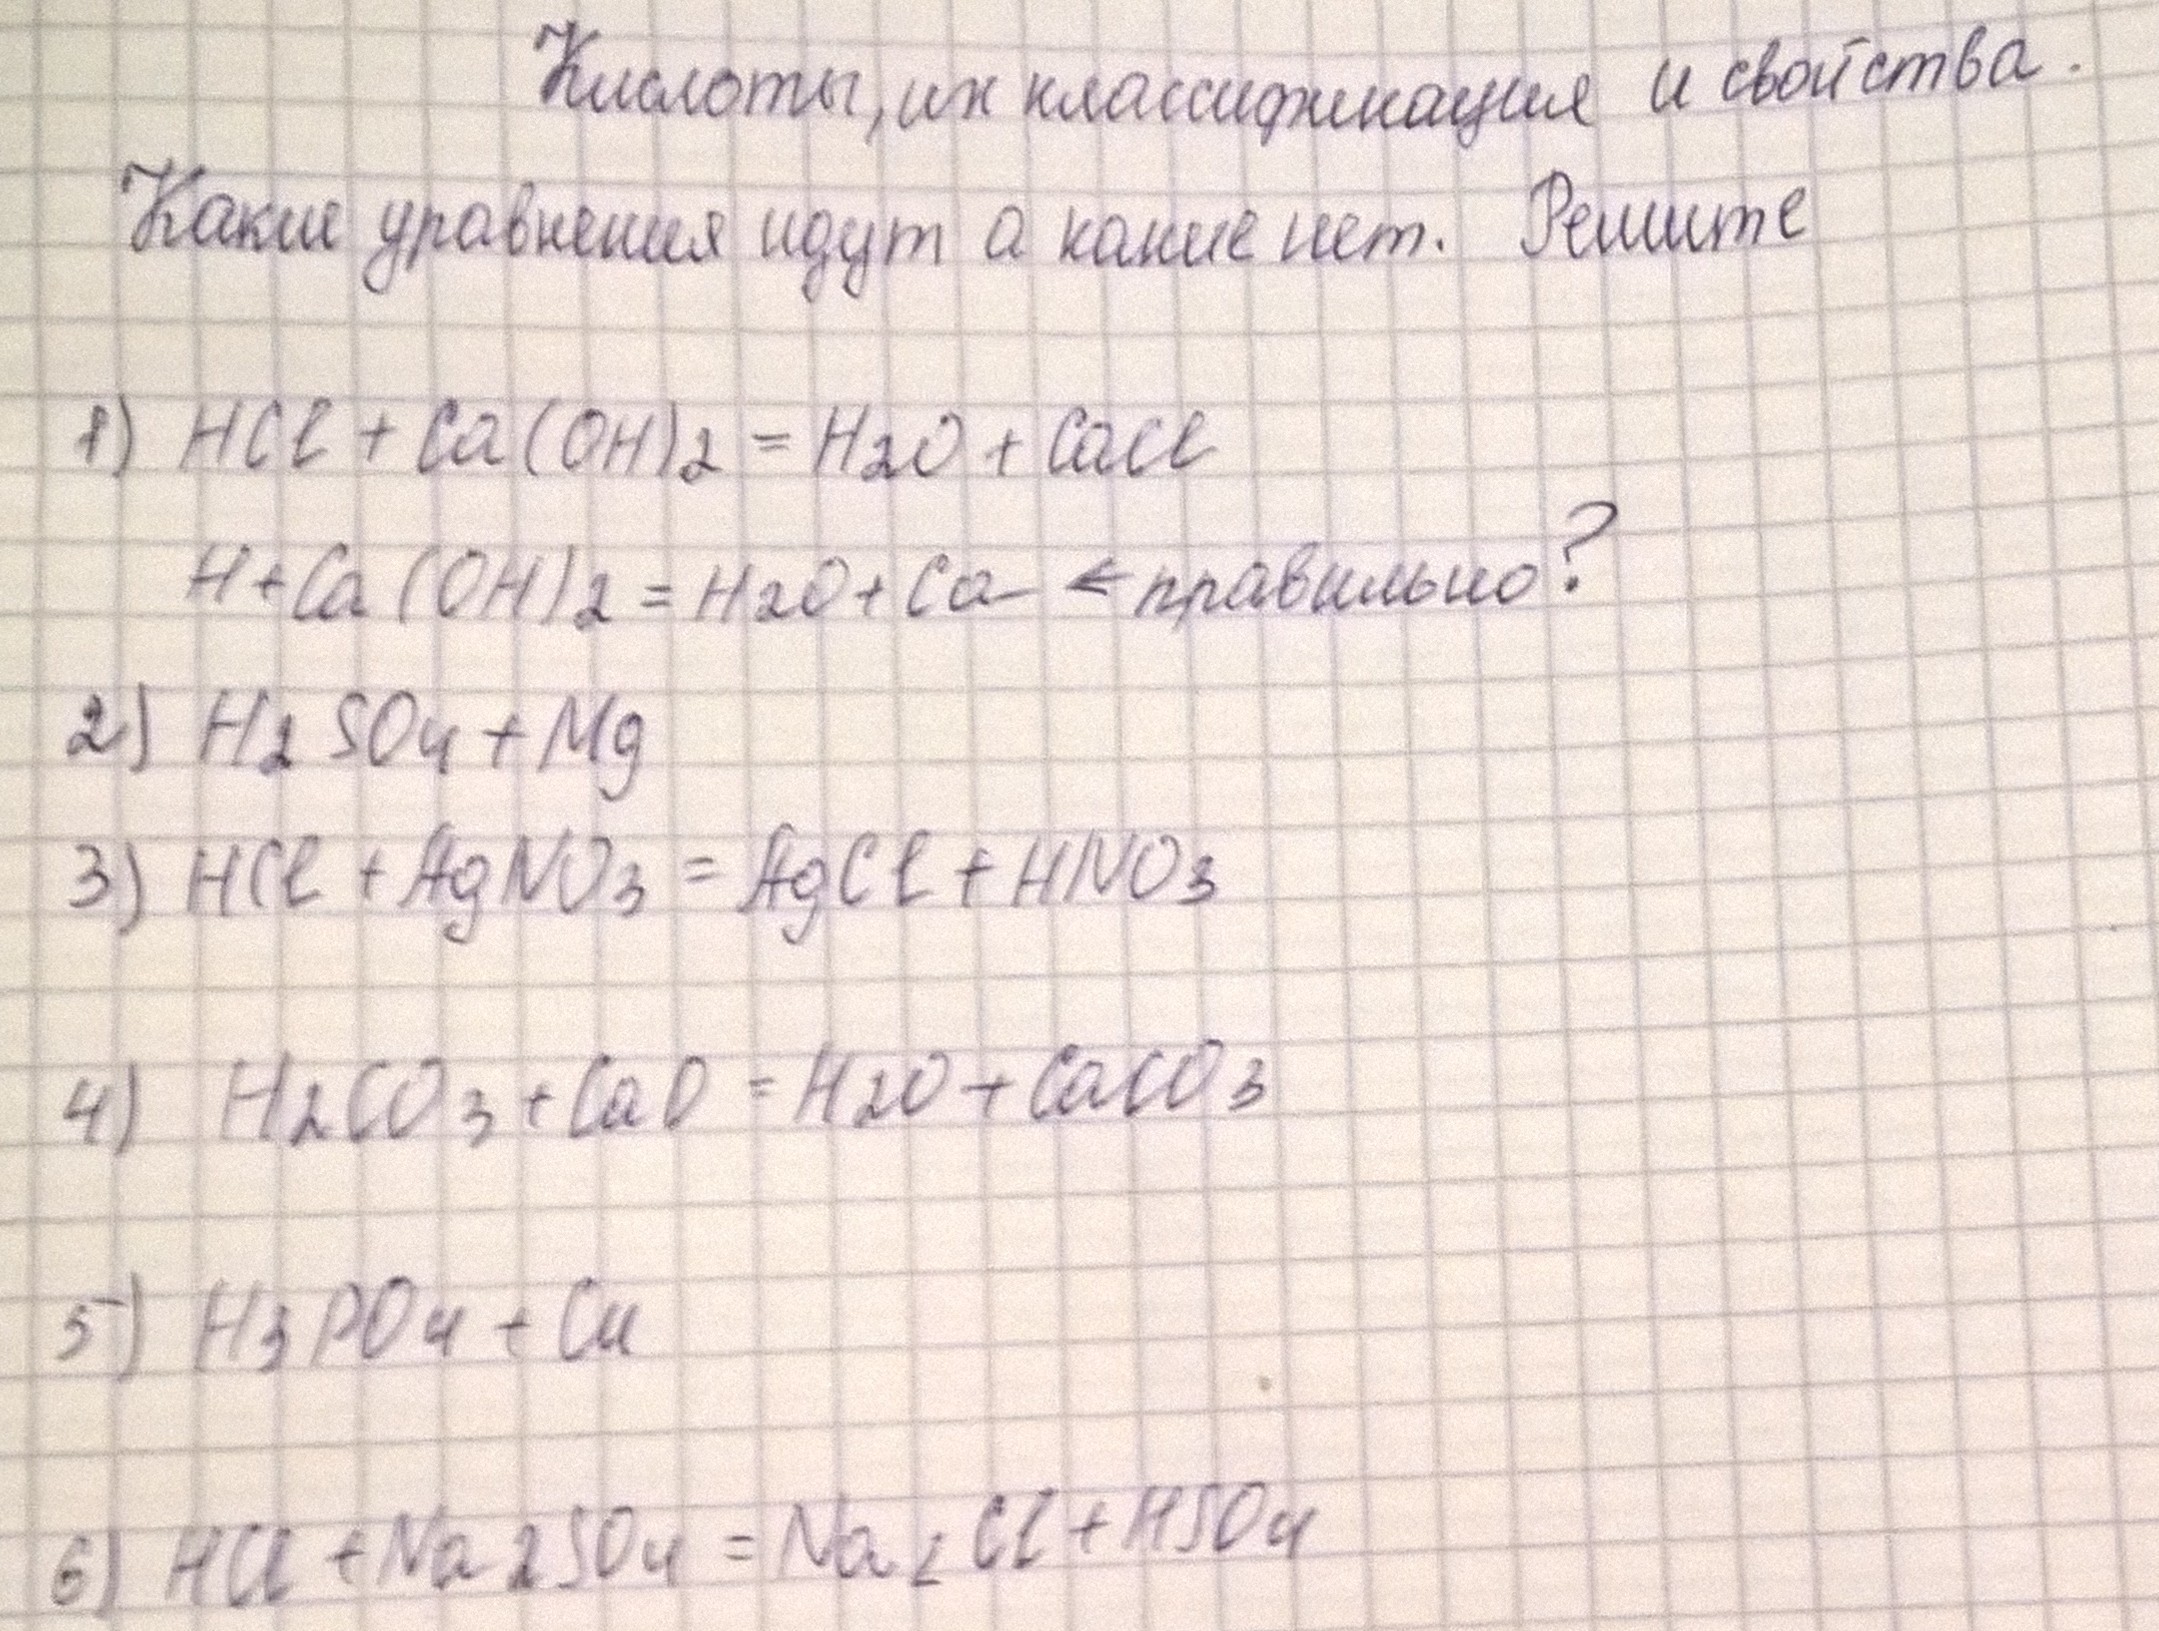 Кислоты, их классификация и свойства.
Какие уравнения идут а какие нет. Решите
1) HCl + Ca(OH)2 = H2O + CaCl
H + Ca(OH)2 = H2O + Ca ← правильно?
2) H2SO4 + Mg
3) HCl + AgNO3 = AgCl + HNO3
4) H2CO3 + CaO = H2O + CaCO3
5) H3PO4 + Cu
6) HCl + Na2SO4 = Na2Cl + HSO4